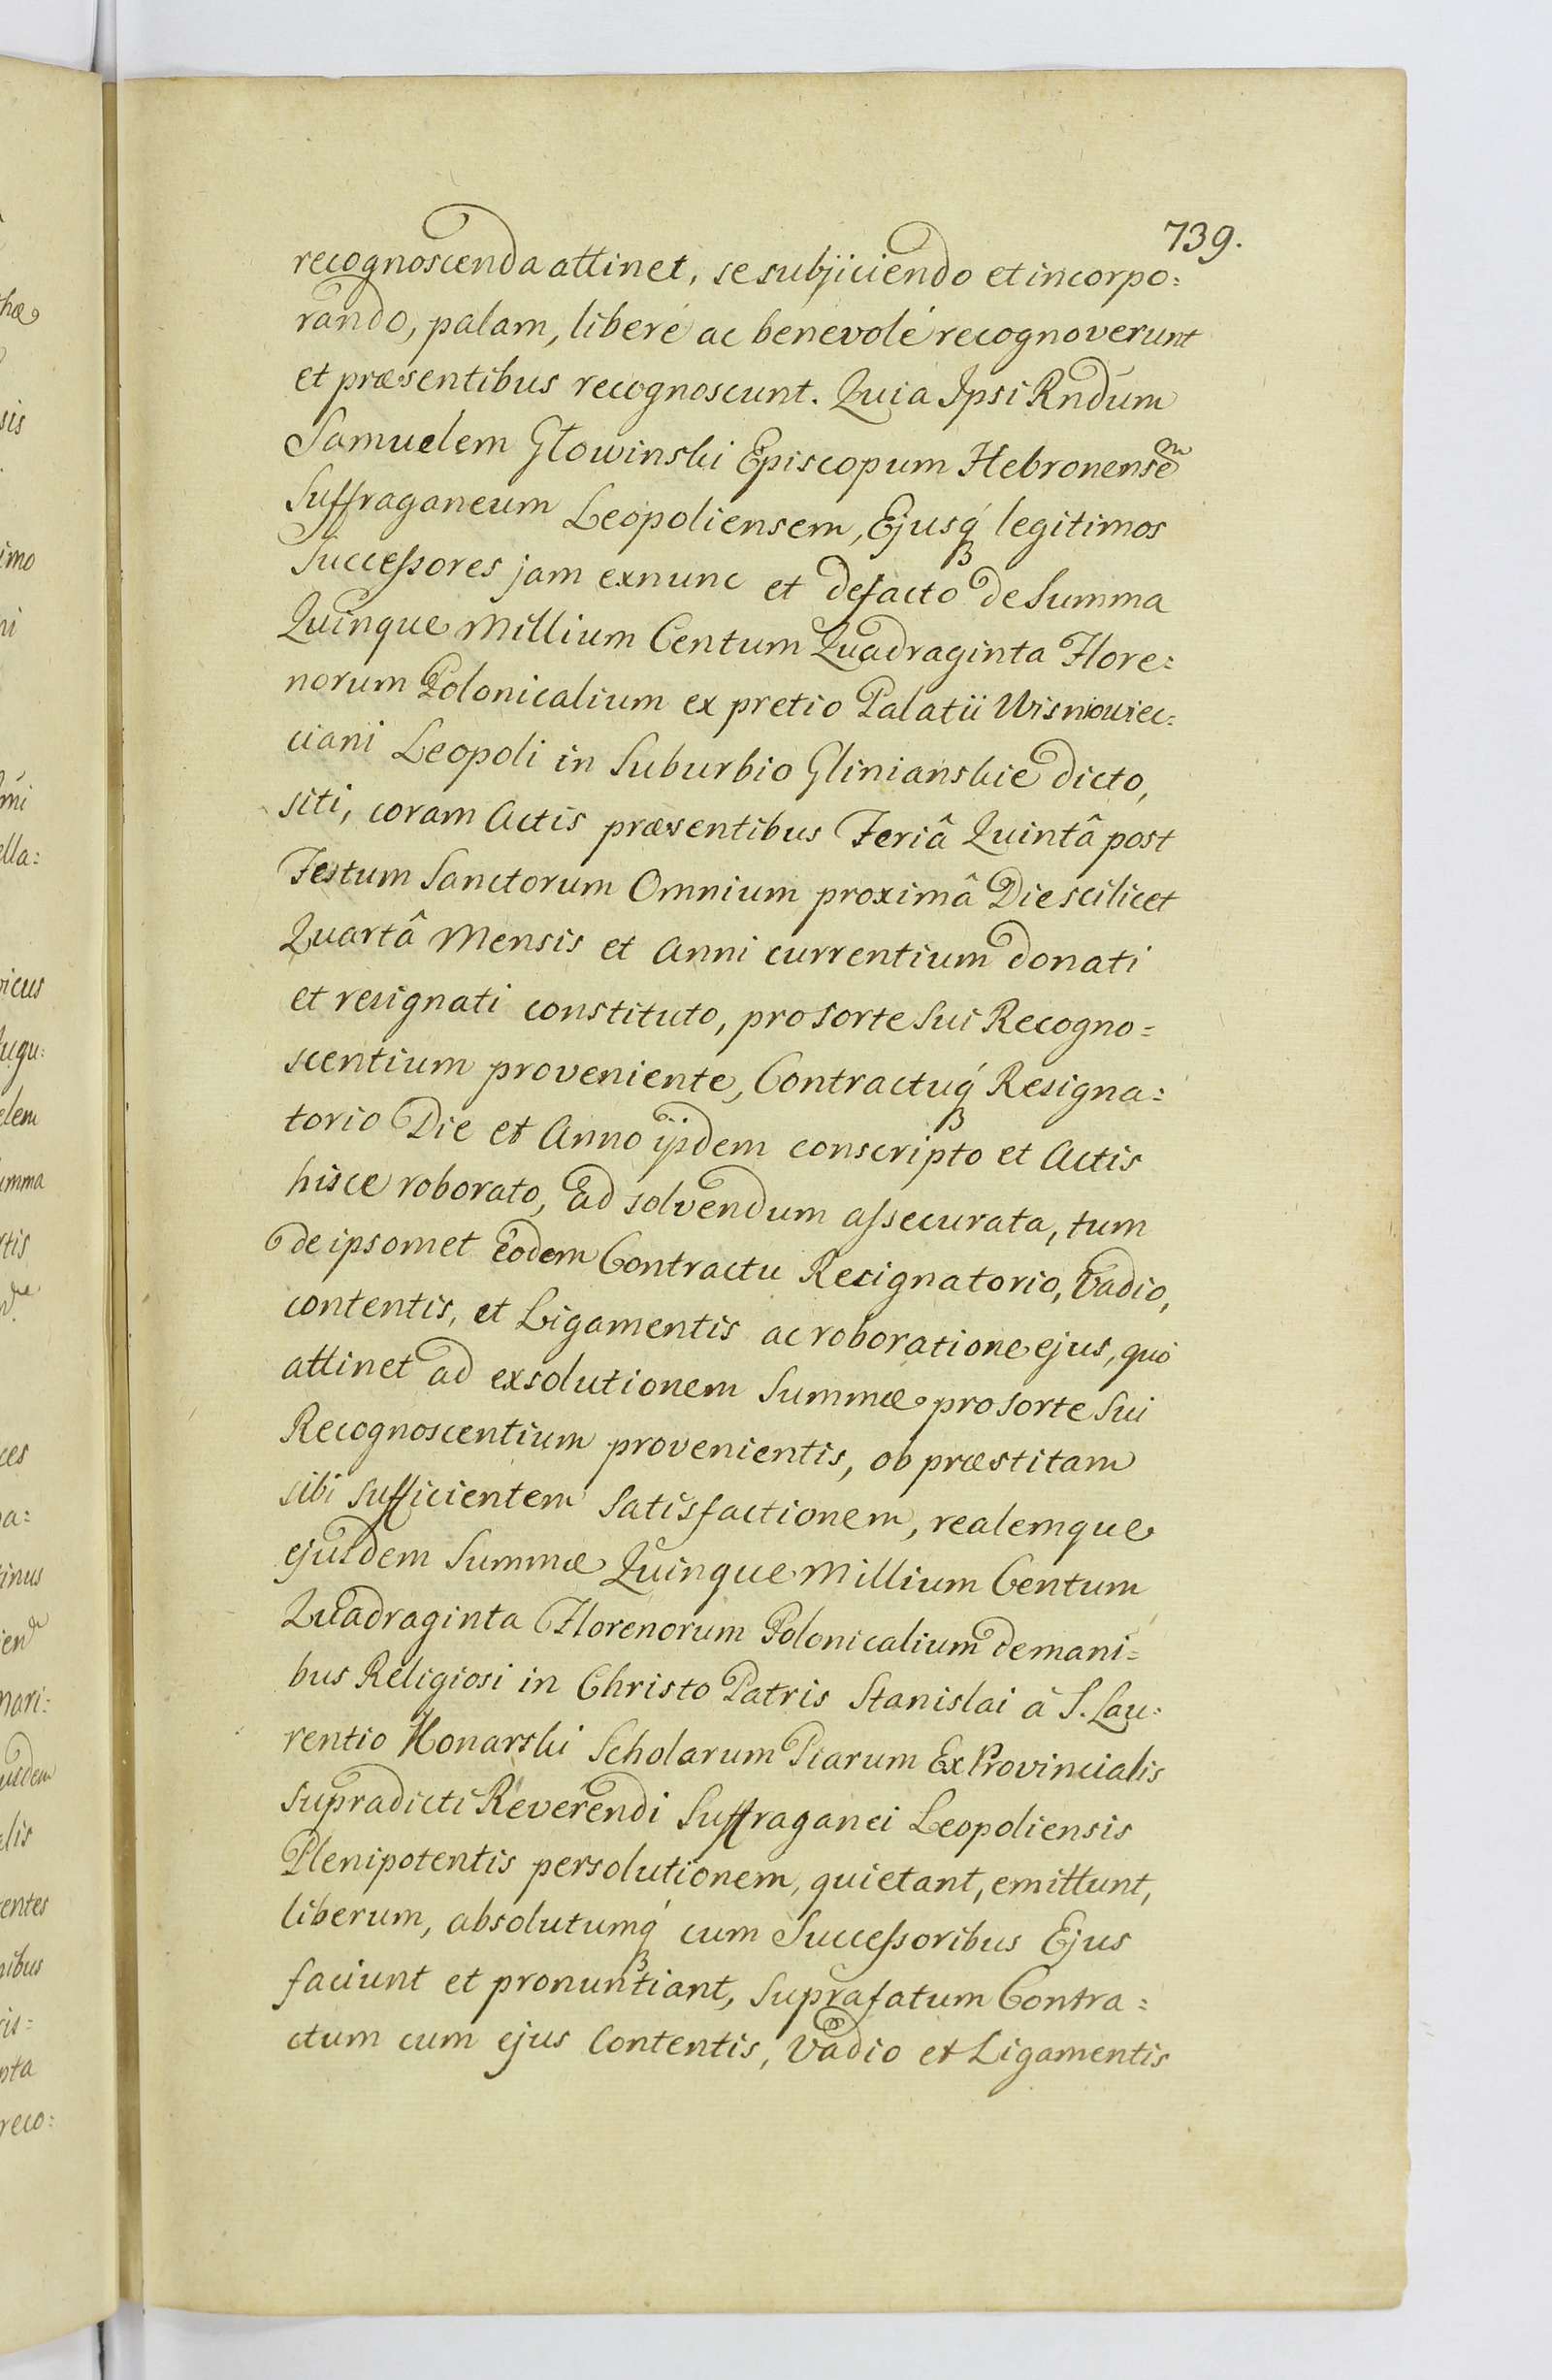 739.
recognoscenda attinet, se subjiciendo et incorpo:
rando, palam, liberé ac benevolé recognoverunt
et præsentibus recognoscunt. Quia Ipsi Rndum
Samuelem Głowinski Episcopum Hebronensem
Suffraganeum Leopoliensem, Ejusq́ legitimos
Successores jam exnunc et defacto de Summa
Quinque Millium Centum Quadraginta Flore:
norum Polonicalium ex pretio Palatii Wisniowiec:
ciani Leopoli in Suburbio Glinianskie dicto,
siti, coram Actis præsentibus Feriâ Quintâ post
Festum Sanctorum Omnium proximâ Die scilicet
Quartâ Mensis et Anni currentium donati
et resignati constituto, pro sorte Sui Recogno=
scentium proveniente, Contractuq́ Resigna:
torio Die et Anno ijsdem conscripto et Actis
hisce roborato, ad solvendum assecurata, tum
de ipsomet eodem Contractu Resignatorio, Vadio,
contentis, et Ligamentis ac roboratione ejus, quó
attinet ad exsolutionem Summæ pro sorte Sui
Recognoscentium provenientis, ob præstitam
sibi sufficientem Satisfactionem, realemque
ejusdem Summæ Quinque Millium Centum
Quadraginta Florenorum Polonicalium de mani=
bus Religiosi in Christo Patris Stanislai à S. Lau:
rentio Konarski Scholarum Piarum Ex Provincialis
supradicti Reverendi Suffraganei Leopoliensis
Plenipotentis persolutionem, quietant, emittunt,
liberum, absolutumq́ cum Successoribus Ejus
faciunt et pronuntiant, Suprafatum Contra=
ctum cum ejus Contentis, Vadio et Ligamentis
sis
imo
ni
ella:
icus
ugu:
elem
umma
rtis
ces
a:
inus
usdem
elis
entes
nibus
ris=
nta
reco: